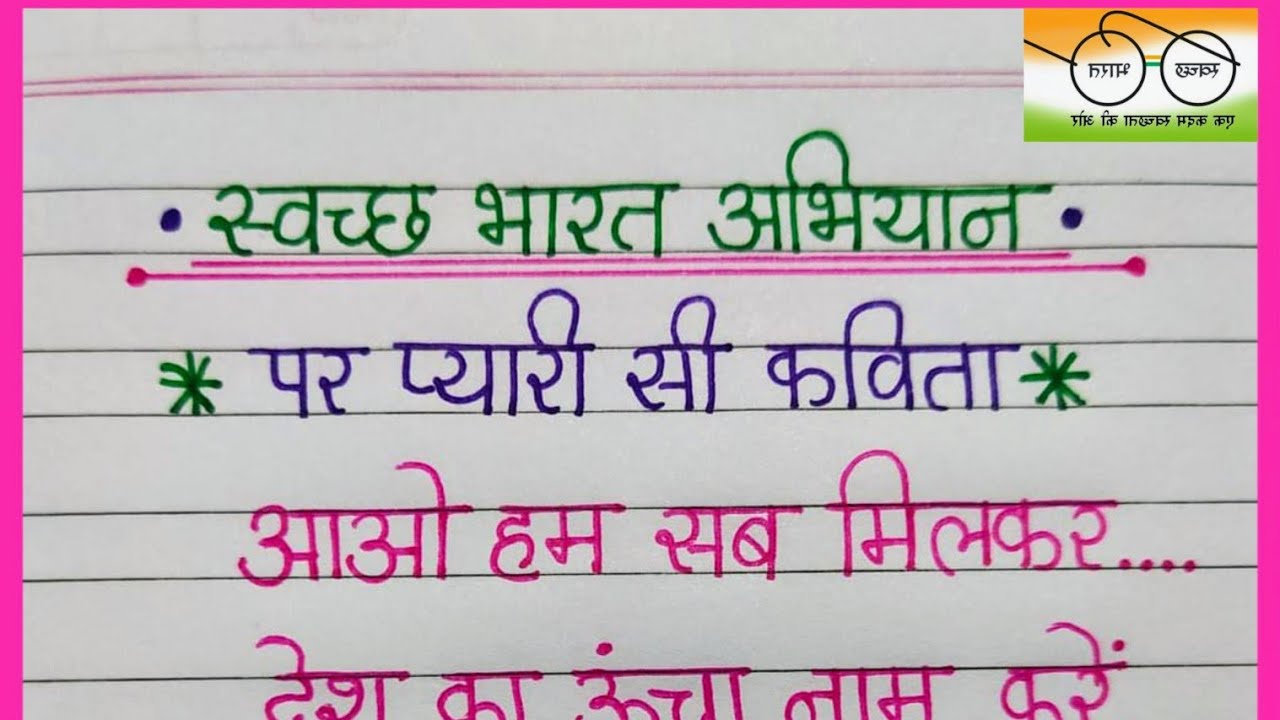 स्वच्छ भारत
एक कदम स्वच्छता की ओर
• स्वच्छ भारत अभियान •
* पर प्यारी सी कविता *
आओ हम सब मिलकर....
देश का ऊंचा नाम करें